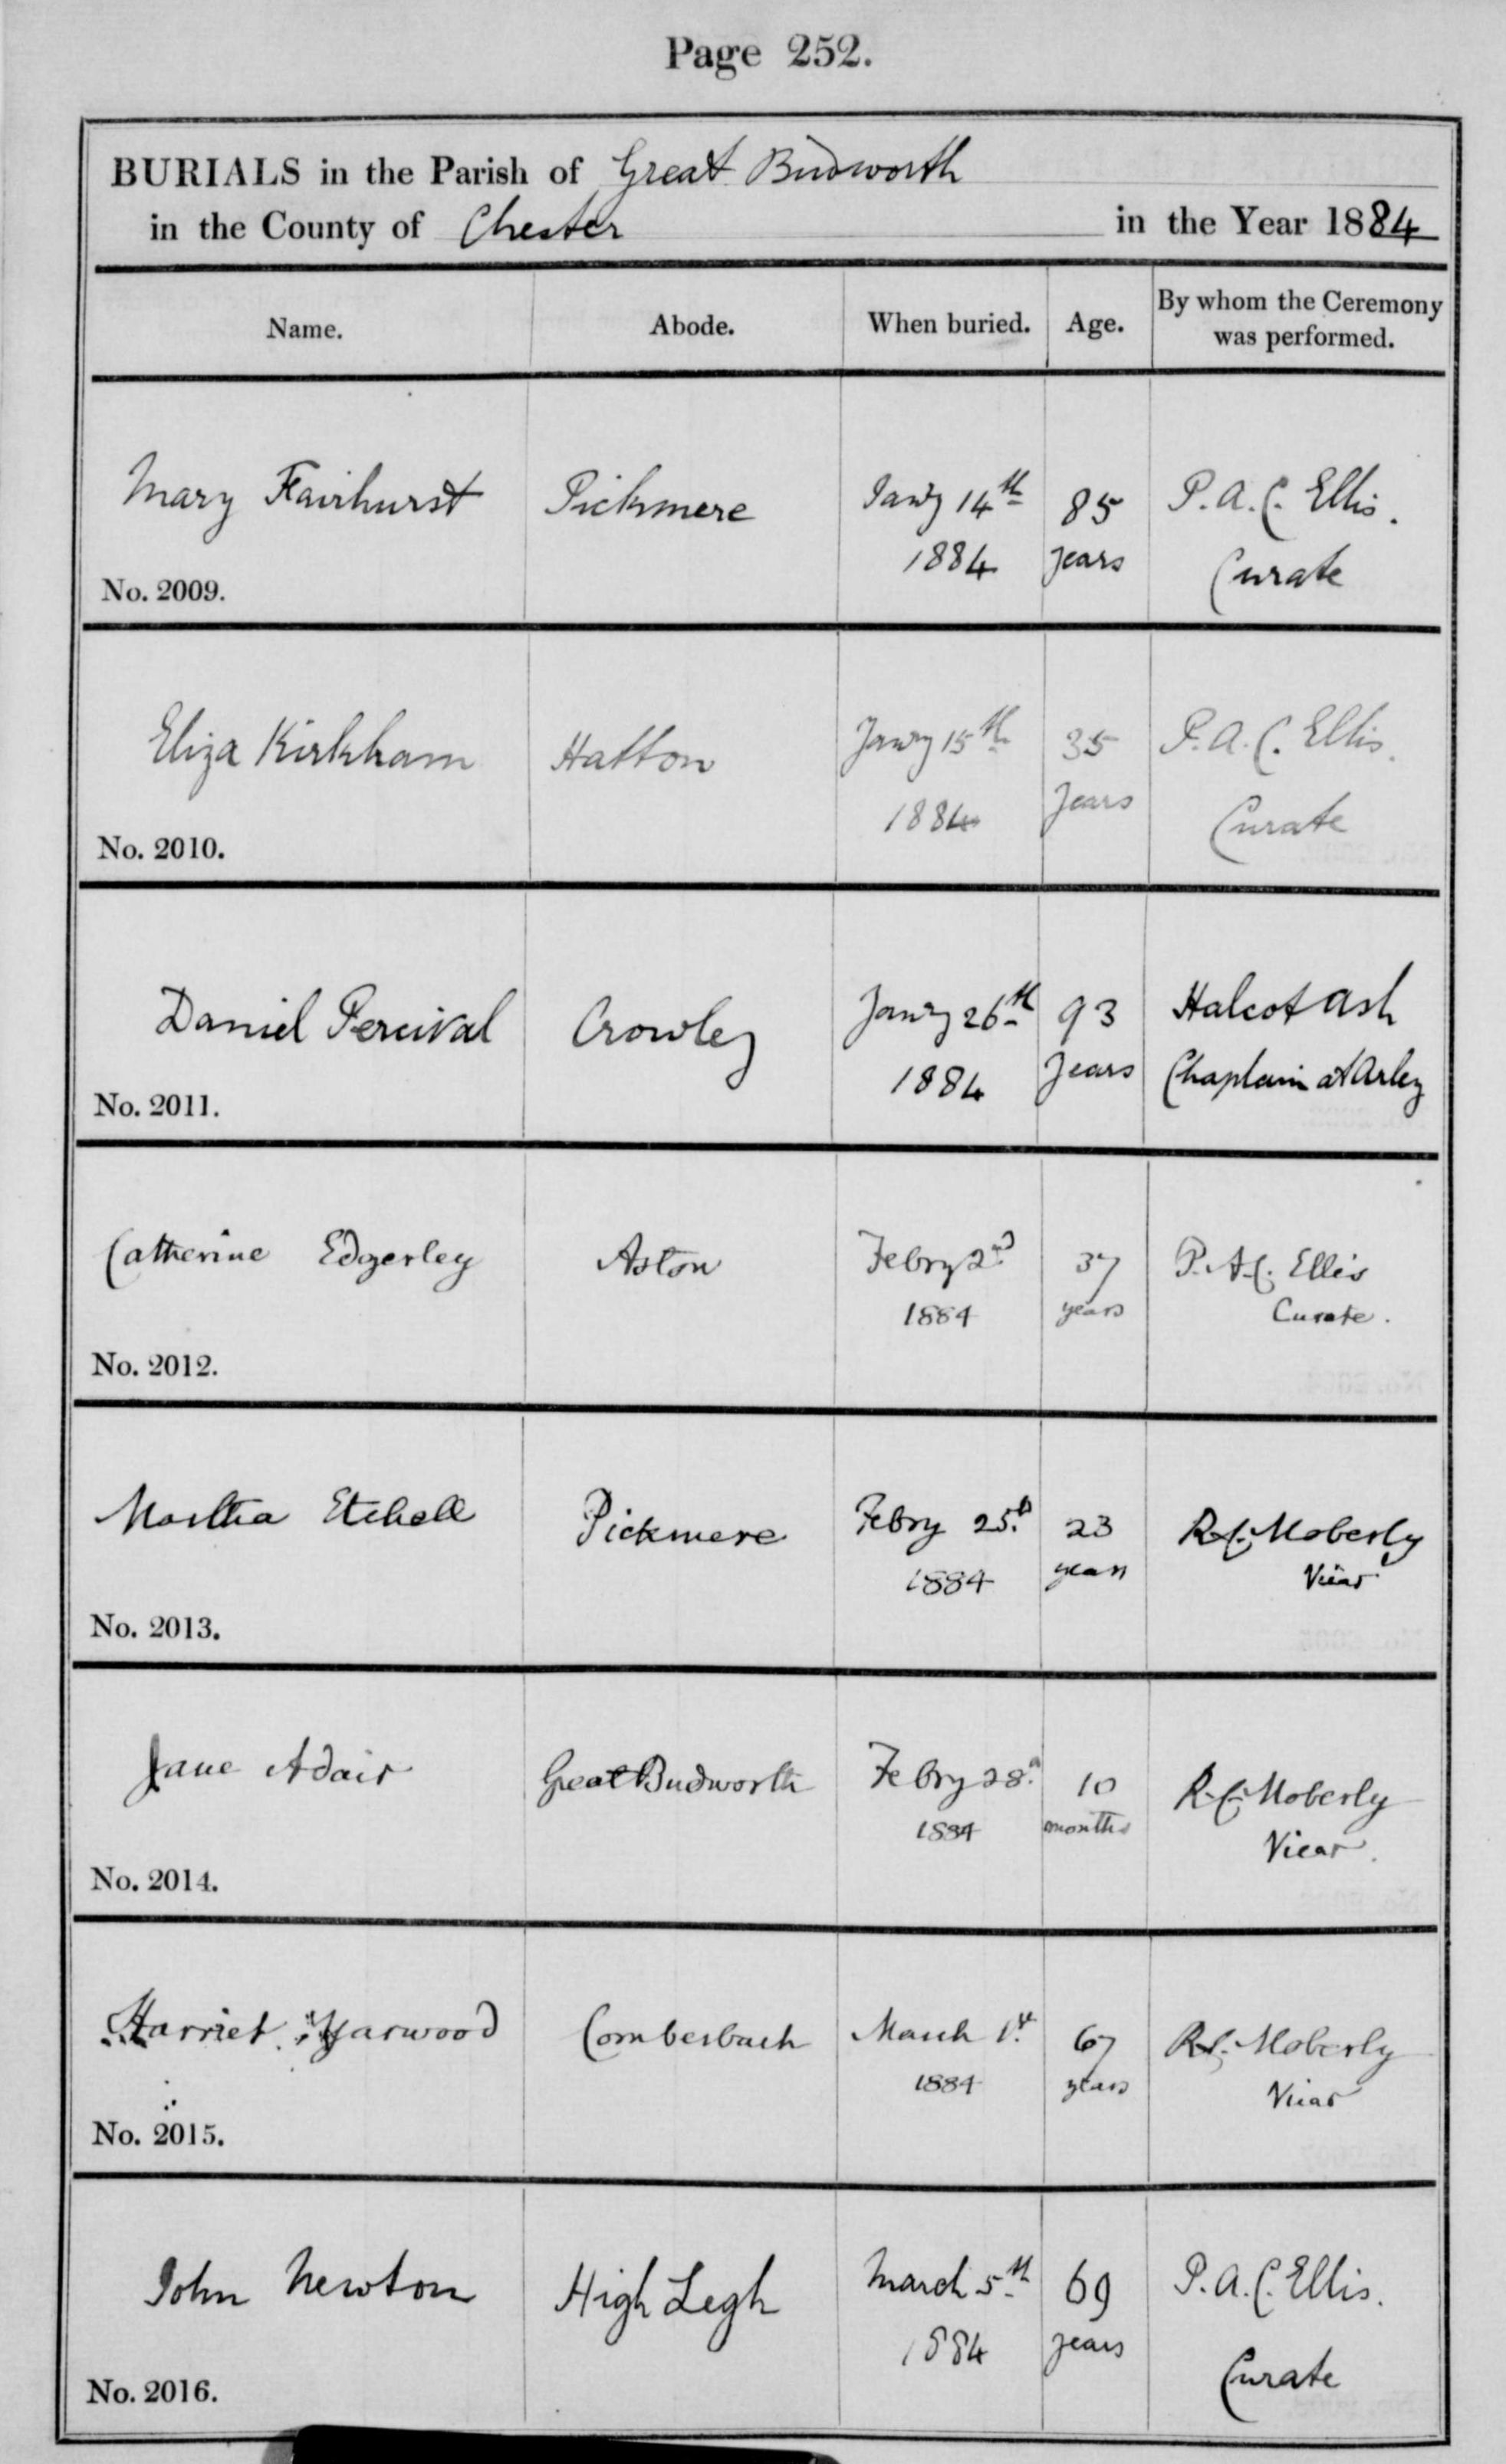 Page 252.
BURIALS in the Parish of Great Budworth
in the County of Chester in the Year 1884
Name. Abode. When buried. Age. By whom the Ceremony was performed.
Mary Fairhurst Pickmere Janry 14th 85 P. A. C. Ellis.
1884 years Curate
No. 2009.
Eliza Kirkham Hatton Janry 15th 35 P. A. C. Ellis.
1884 years Curate
No. 2010.
Daniel Percival Crowley Janry 26th 93 Halcot Ash
1884 years Chaplain at Arley
No. 2011.
Catherine Edgerley Aston Febry 2nd 37 P. A. C. Ellis
1884 years Curate.
No. 2012.
Martha Etchell Pickmere Febry 25th 23 R. C. Moberly
1884 years Vicar
No. 2013.
Jane Adair Great Budworth Febry 28th 10 R. C. Moberly
1884 months Vicar.
No. 2014.
Harriet Yarwood Comberbach March 1st 67 R. C. Moberly
1884 years Vicar
No. 2015.
John Newton High Legh March 5th 69 P. A. C. Ellis.
1884 years Curate
No. 2016.